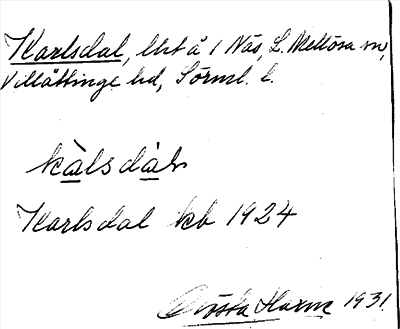 Karlsdal, lht å 1 Näs, L. Mellösa sn,
Villåttinge hd, Sörml. l.
kàlsdàln
Karlsdal kb 1924
Gösta Harm 1931.